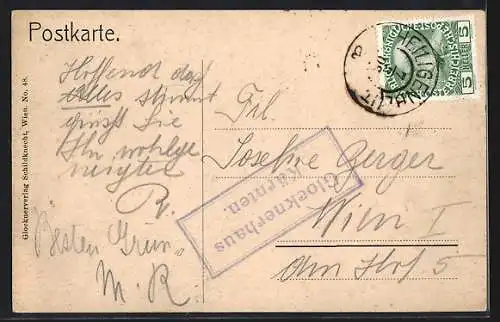 Postkarte.
Hoffend daß
Alles stimmt
grüßt Sie
Ihr wohlge
neigter
R.
Besten Gruss
M. R.
Glocknerverlag Schildknecht, Wien. No. 48.
5 HELLER 5
HEILIGEN
Frl.
Josefine Berger
Wien I
am Hof 5
Glocknerhaus
Kärnten.